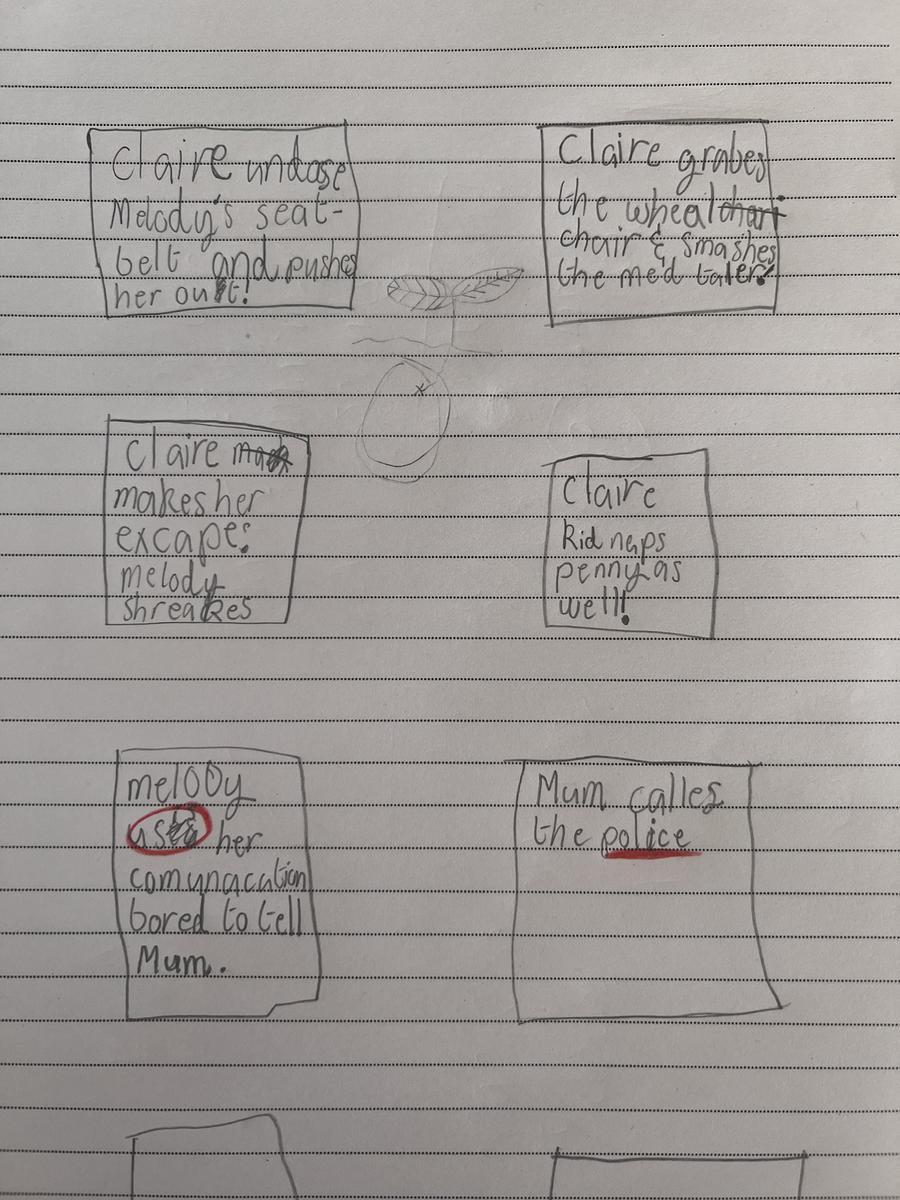 Claire undose
Melody's seat-
belt and pushes
her out!
Claire grabes
the wheal
chair & smashes
the med taler!
Claire
makes her
excape!
melody
shreakes
Claire
kidnaps
penny as
well!
melody
her
comunacation
bored to tell
Mum.
Mum calles
the police